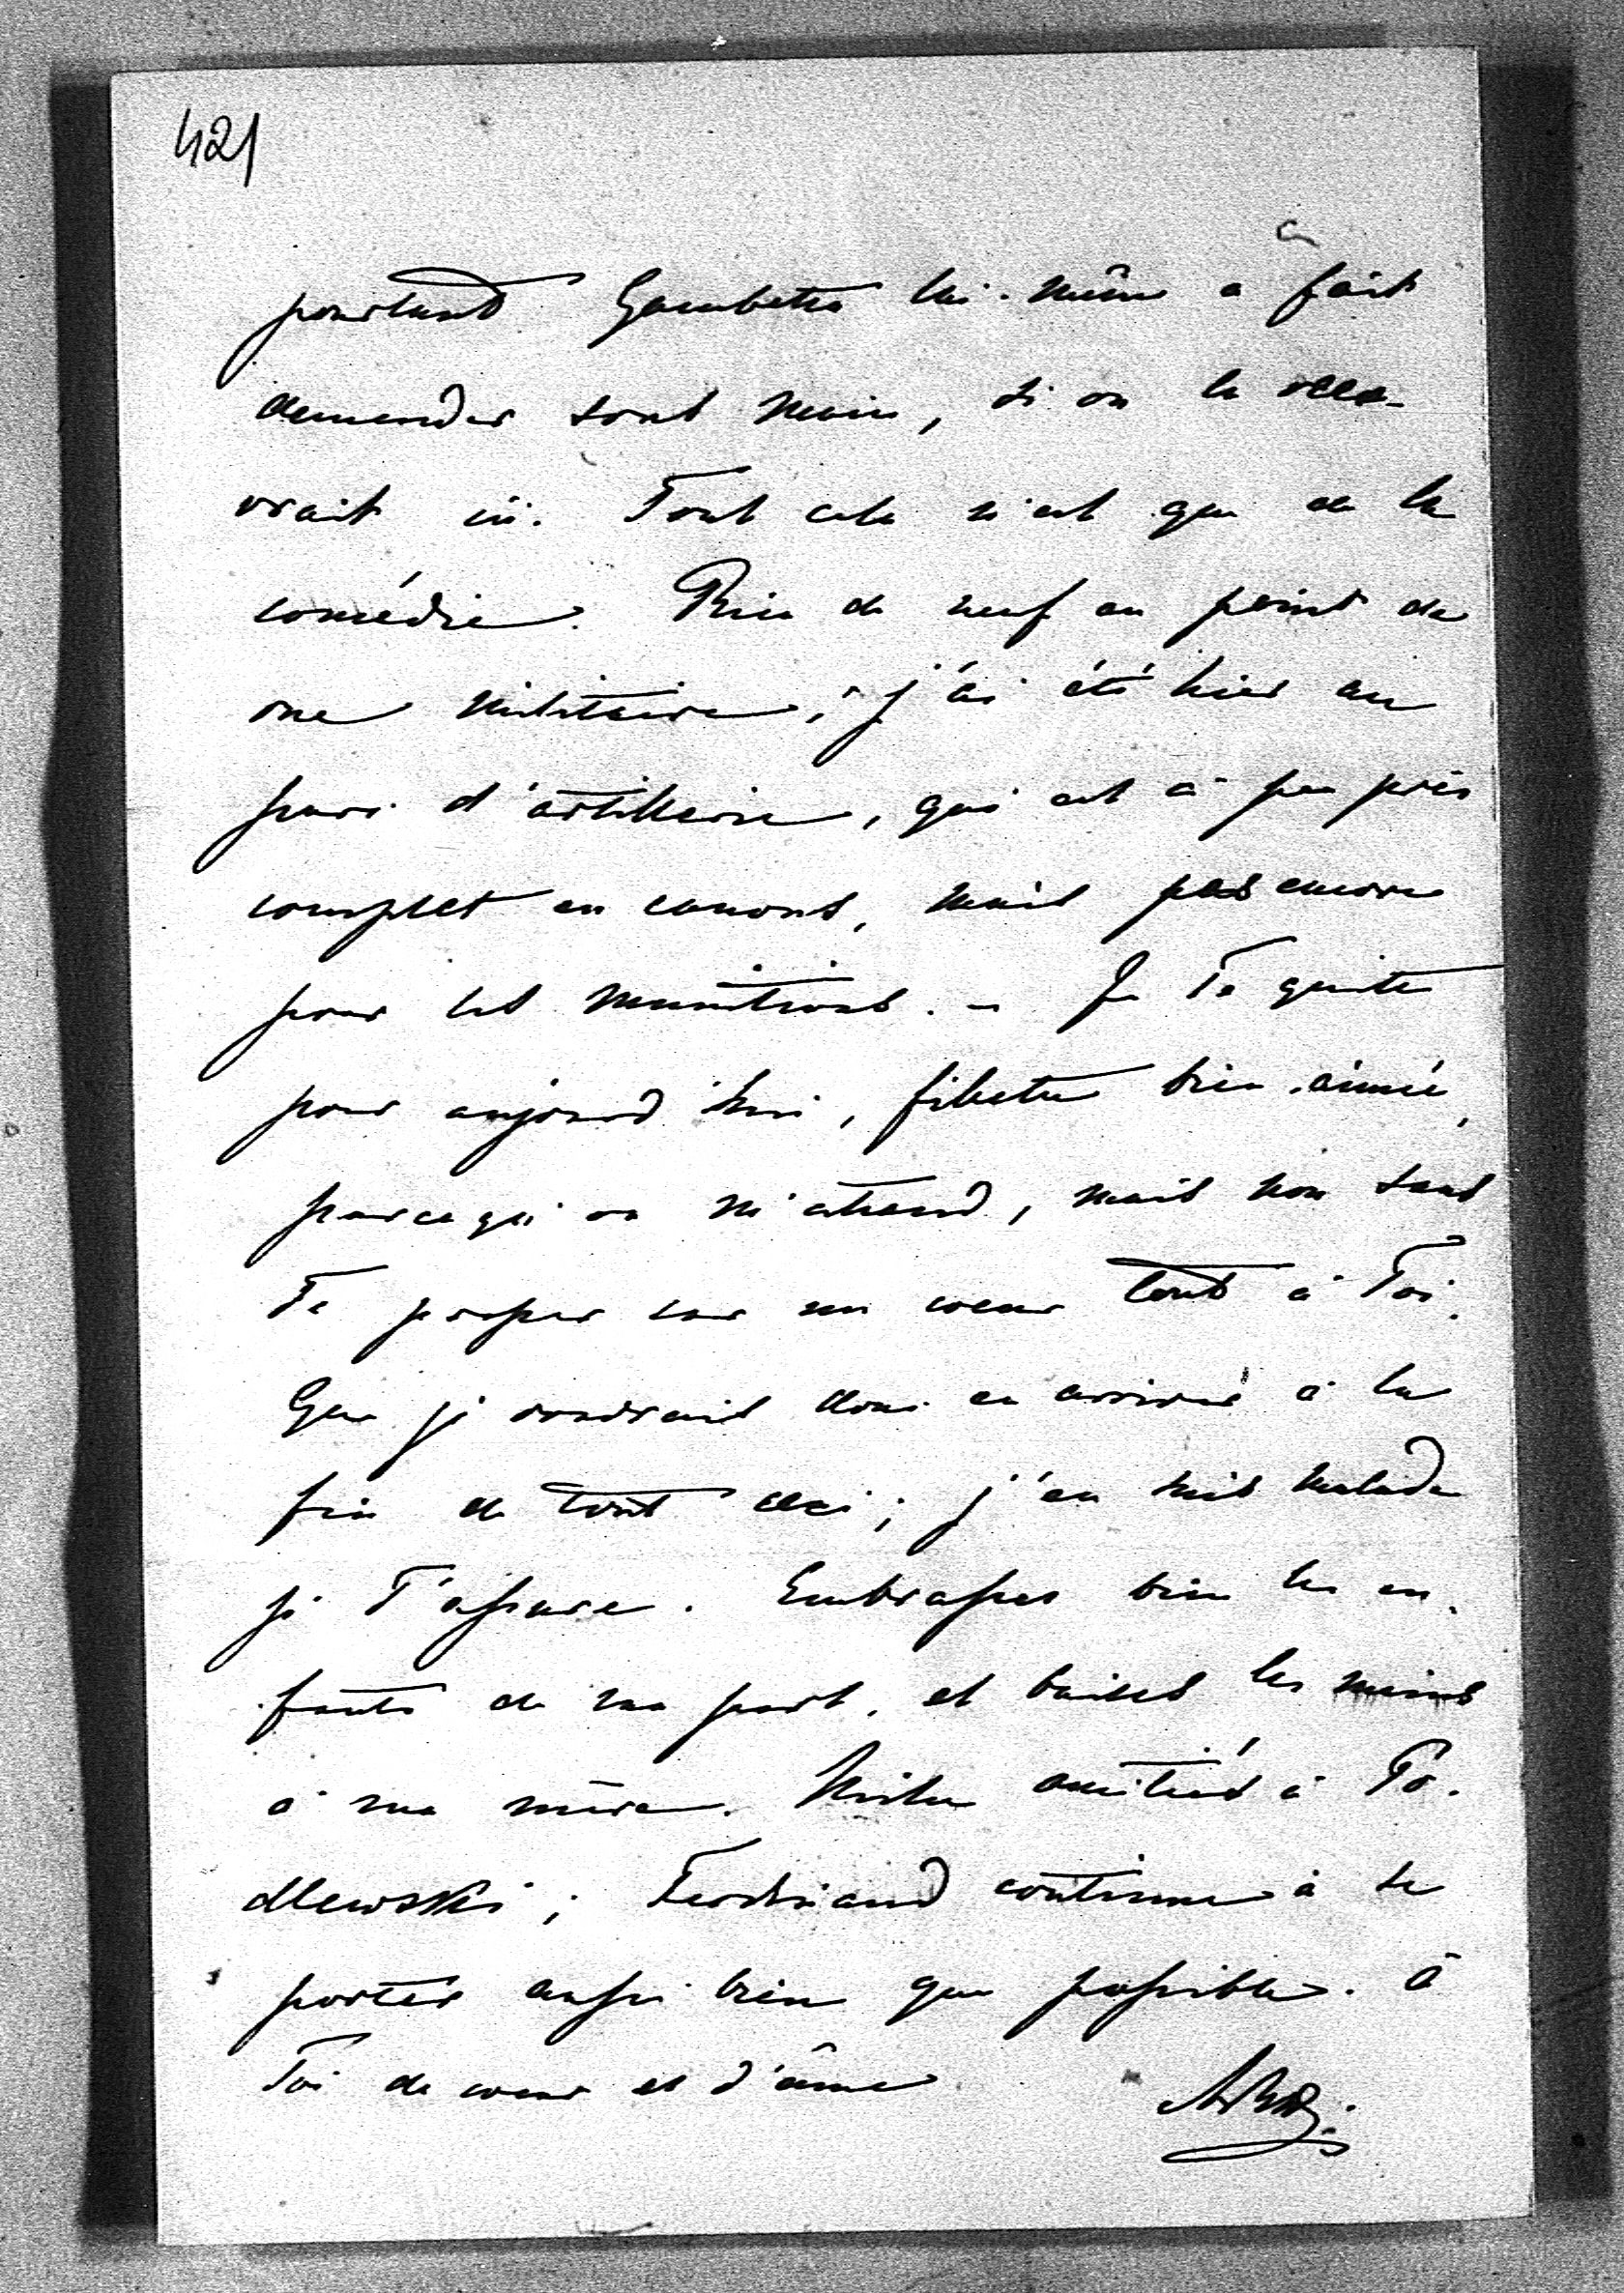 421
pourtant Gambetta lui-même a fait
demander sous main, si on le rece-
vrait ici. Tout cela n'est que de la
comédie. Rien de neuf au point de
vue militaire; j'ai été hier au
parc d'artillerie, qui est à peu près
complet en canons, mais pas encore
pour les munitions. – Je Te quitte
pour aujourd'hui, fillette bien-aimée,
parcequ'on m'attend, mais non sans
Te presser sur un coeur tout à Toi.
Que je voudrais donc en arriver à la
fin de tout ceci; j'en suis malade
je T'assure. Embrasses bien les en-
fants de ma part, et baises les mains
à ma mère. Milles amitiés à Po-
dlewski; Ferdinand continue à se
porter aussi bien que possible. à
Toi de coeur et d'âme